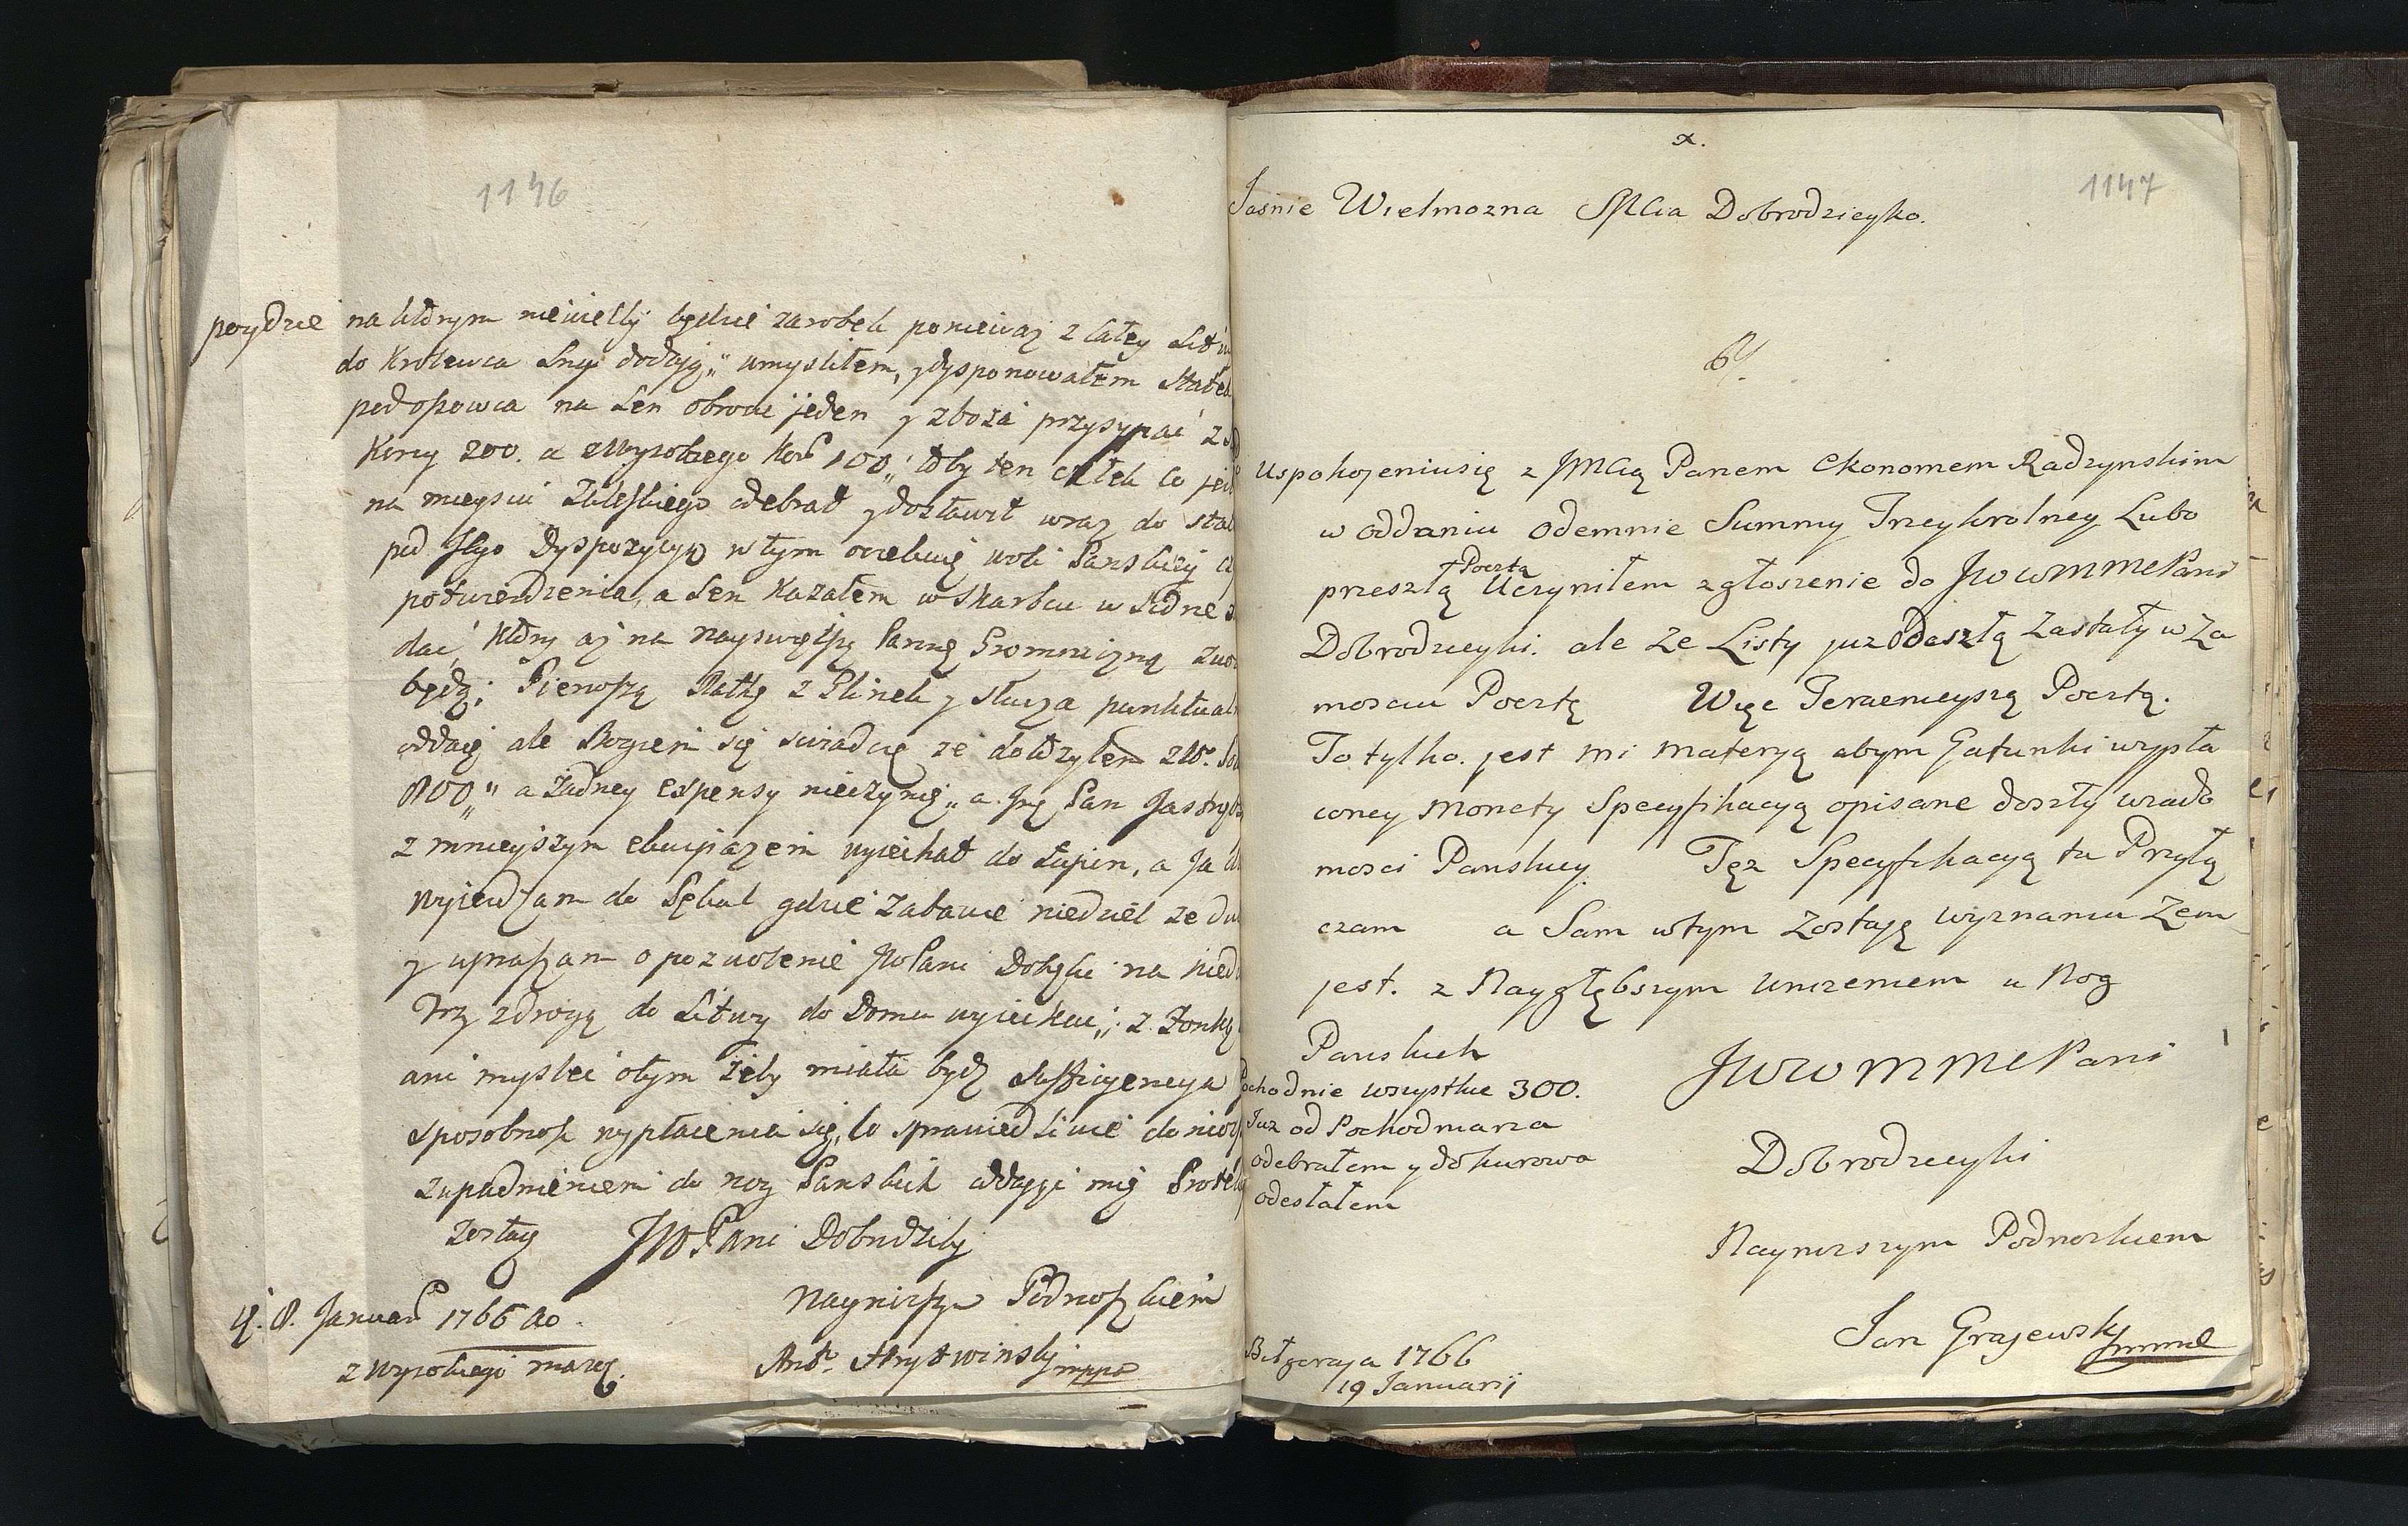 1146
poydzie na ktorym niewielky będzie zarobek poniewaz z całey Litw
do Krolewca Lny dodają„ umysliłem, y dysponowałem Statek
pod osowca na Len obrocic jeden y zboza przysypac z
Korcy 200. a z Wysokiego Kor 100„ toby ten człek co jest
na mieyscu Zaleskiego odebrał y dostawił wraz do stat
pod Jego Dyspozycyą w tym oczekuię woli Panskiey
potwierdzenia, a Len Kazałem w Skarbcu w Sidne
dac, ktory az na nayswętszą Pannę Gromniczną zwo
będą; Pierwszą Ratkę z Plinek y Słucza punktual
oddaię ale Bogiem się swiadczę ze dołozyłem zło.
800„ a zadney expensy nieczynię„ a Jmę Pan Jastrzębs
z mnieyszym ekwipazem wyiechał do Łupin, a Ja
wyiezdzam do Sękul gdzie zabawie niedziel ze dw
y upraszam o pozwolenie JWPani Dobrki na niedz
trzy z drogą do Litwy do Domu wyiechac„. z Zonką
ani myslec o tym zeby miała bydz sufficyencya
sposobnosc wypłacenia się, co sprawiedliwie donios
z upadnieniem do nog Panskich oddaję mię Protek
zostaę JWPani Dobrodziki
naynizszym Podnoszkiem
d. 8. Januar 1766 Ao.
z Wysokiego maz.
Ant. Hrytwinsky mppa
1147
Jasnie Wielmozna JMCia Dobrodzieyko.
Uspokojeniusię z JMCią Panem Ekonomem Radzynskim
w oddaniu odemnie Summy Trzeykrolney Lubo
Pocztą
przeszłą Uczyniłem zgłoszenie do JWWMMMPani
Dobrodzieyki. ale ze Listy juz Odeszłą Zastały w Za
mosciu Pocztę Więc Teraznieyszą Pocztą.
To tylko. jest mi materyą abym Gatunki wypła
coney Monety Specyfikacyą opisane doszły wiado
mosci Panskiey. Tęz Specyfikacyą tu Przyłą
czam a Sam wtym Zostaję wyznaniu Zem
jest. z Naygłębszym Unizeniem u Nog
Panskich
JWWMMMPani
Dobrodzieyki
Naynizszym Podnozkiem
Jan Grajewsky mml
Pochodnie wszystkie 300.
Juz od Pochodniarza
odebrałem y do kurowa
odesłałem
Biłgoraja 1766
19 Januarij